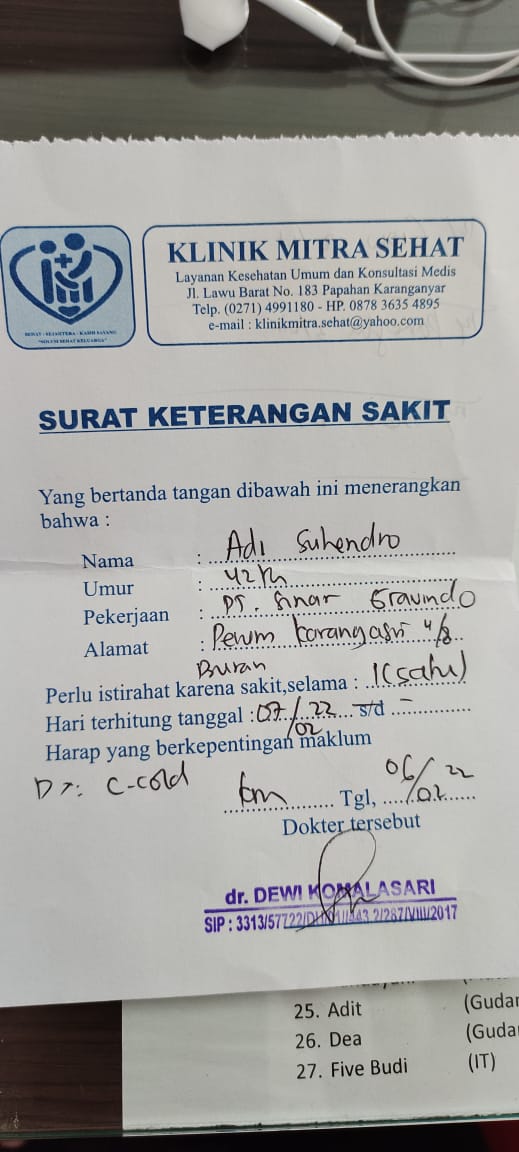 SEHAT - SEJAHTERA - KASIH SAYANG
"SOLUSI SEHAT KELUARGA"
KLINIK MITRA SEHAT
Layanan Kesehatan Umum dan Konsultasi Medis
Jl. Lawu Barat No. 183 Papahan Karanganyar
Telp. (0271) 4991180 - HP. 0878 3635 4895
e-mail : klinikmitra.sehat@yahoo.com
SURAT KETERANGAN SAKIT
Yang bertanda tangan dibawah ini menerangkan
bahwa :
Nama : Adi Suhendro
Umur : 42 th
Pekerjaan : PT. Sinar Gravindo
Alamat : Perum Karangasri 4/8
Buran
Perlu istirahat karena sakit,selama : 1 (satu)
Hari terhitung tanggal : 07/02 22 s/d -
Harap yang berkepentingan maklum
Dx: C-cold
Tgl, 06/02 22
Dokter tersebut
dr. DEWI KOMALASARI
25. Adit (Gudan
26. Dea (Guda
27. Five Budi (IT)